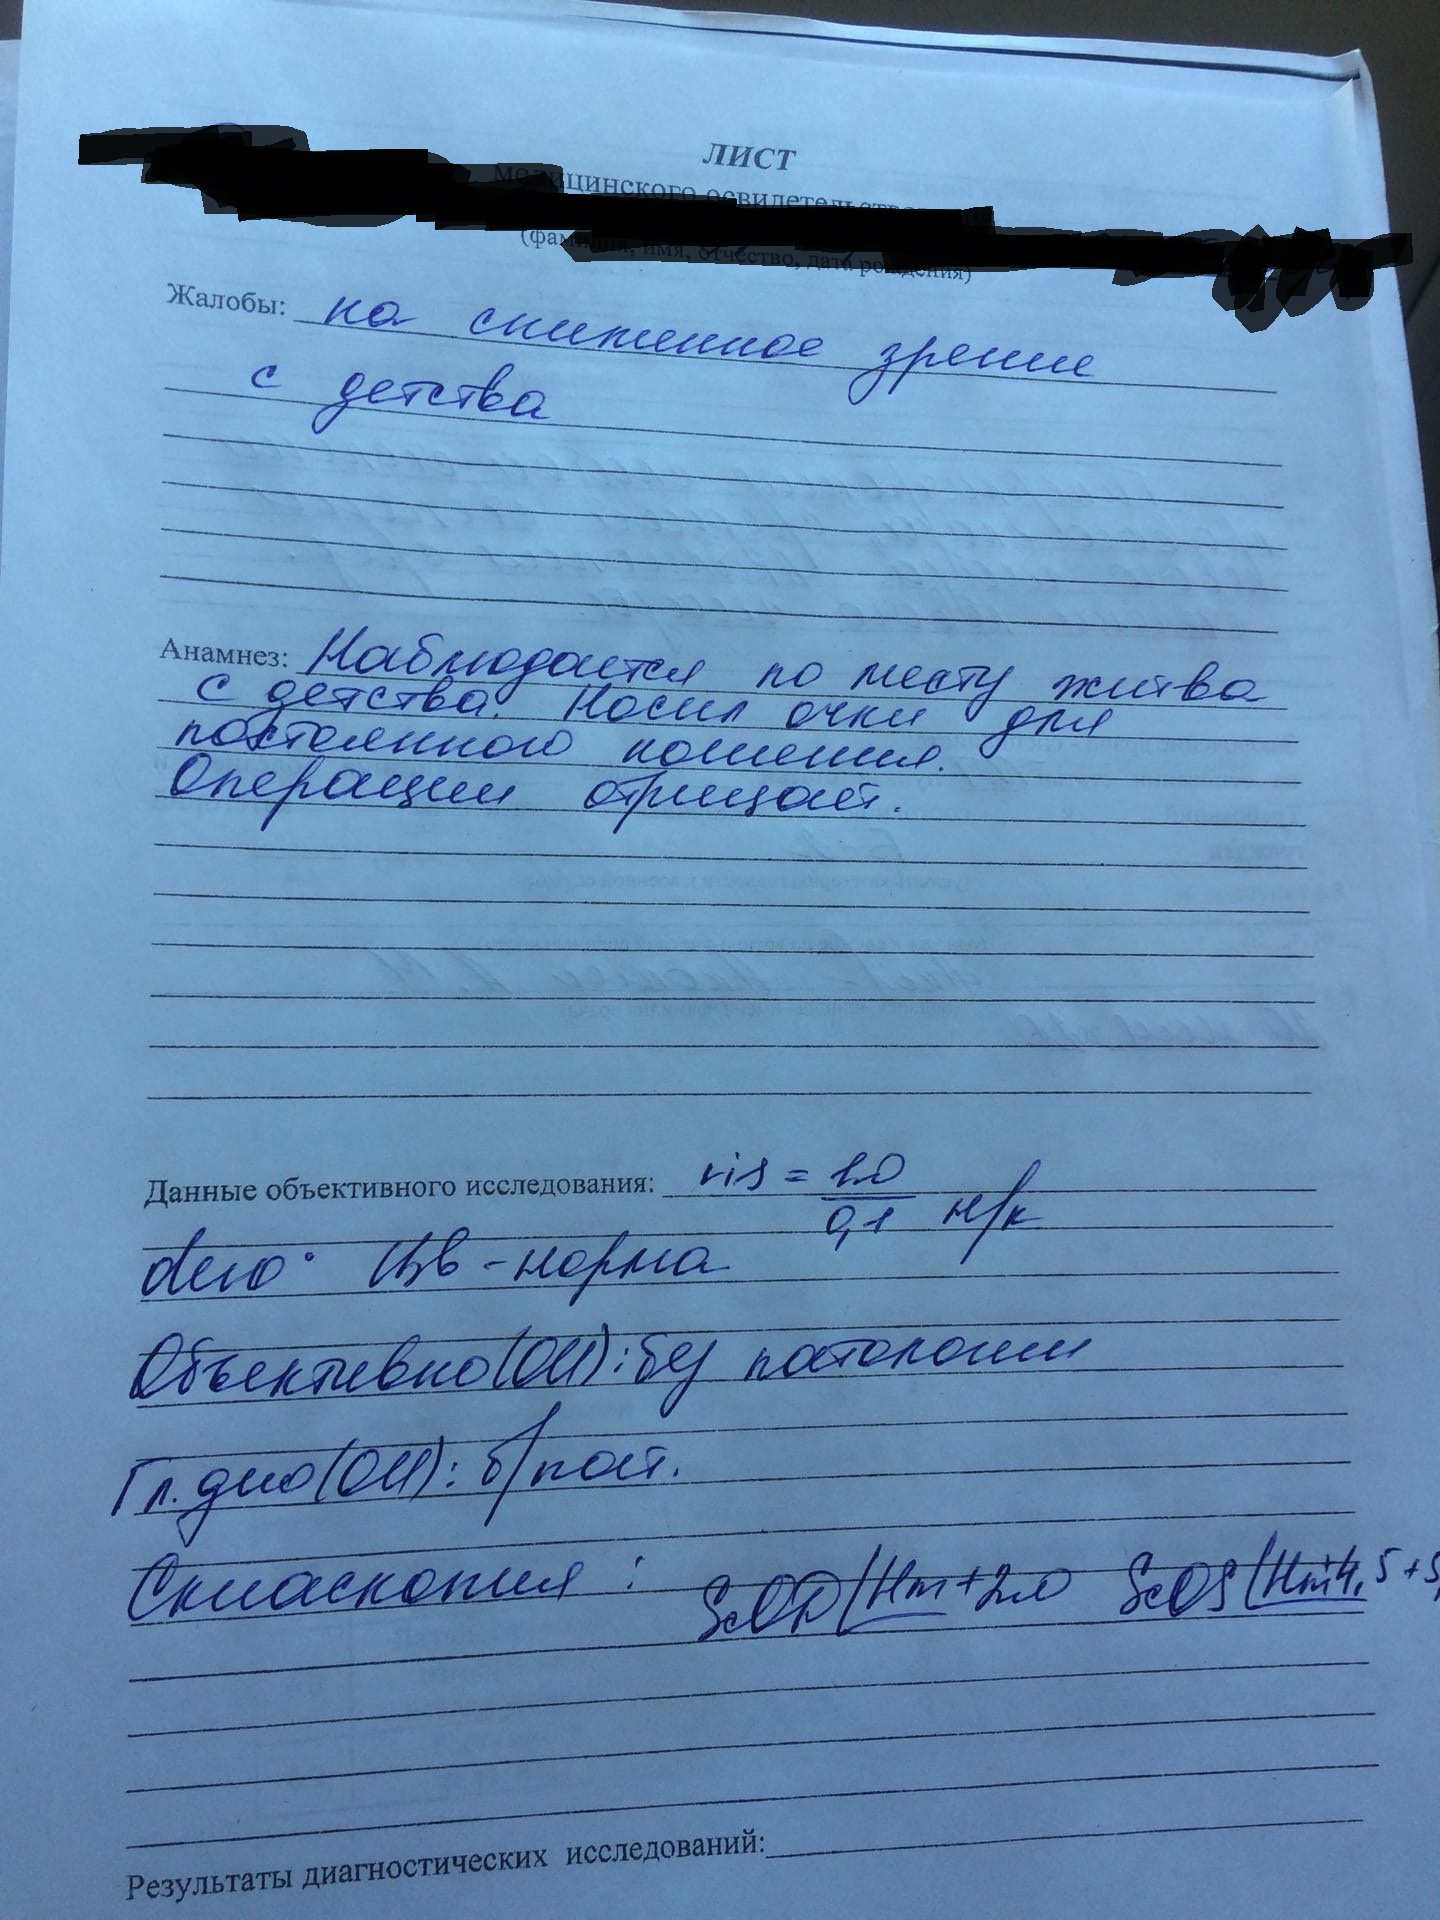 ЛИСТ
медицинского освидетельствования
(фамилия, имя, отчество, дата рождения)
Жалобы: на сниженное зрение
с детства
Анамнез: Наблюдается по месту жит-ва
с детства. Носил очки для
постоянного ношения.
Операции отрицает.
Данные объективного исследования: vis = 1.0
0,1 н/к
dev 0° Цв - норма
Объективно (OU): без патологии
Гл. дно (OU): б/пат.
Скиаскопия: ScOD (Hm +2.0 ScOS (Hm +4,5 +5,
Результаты диагностических исследований: